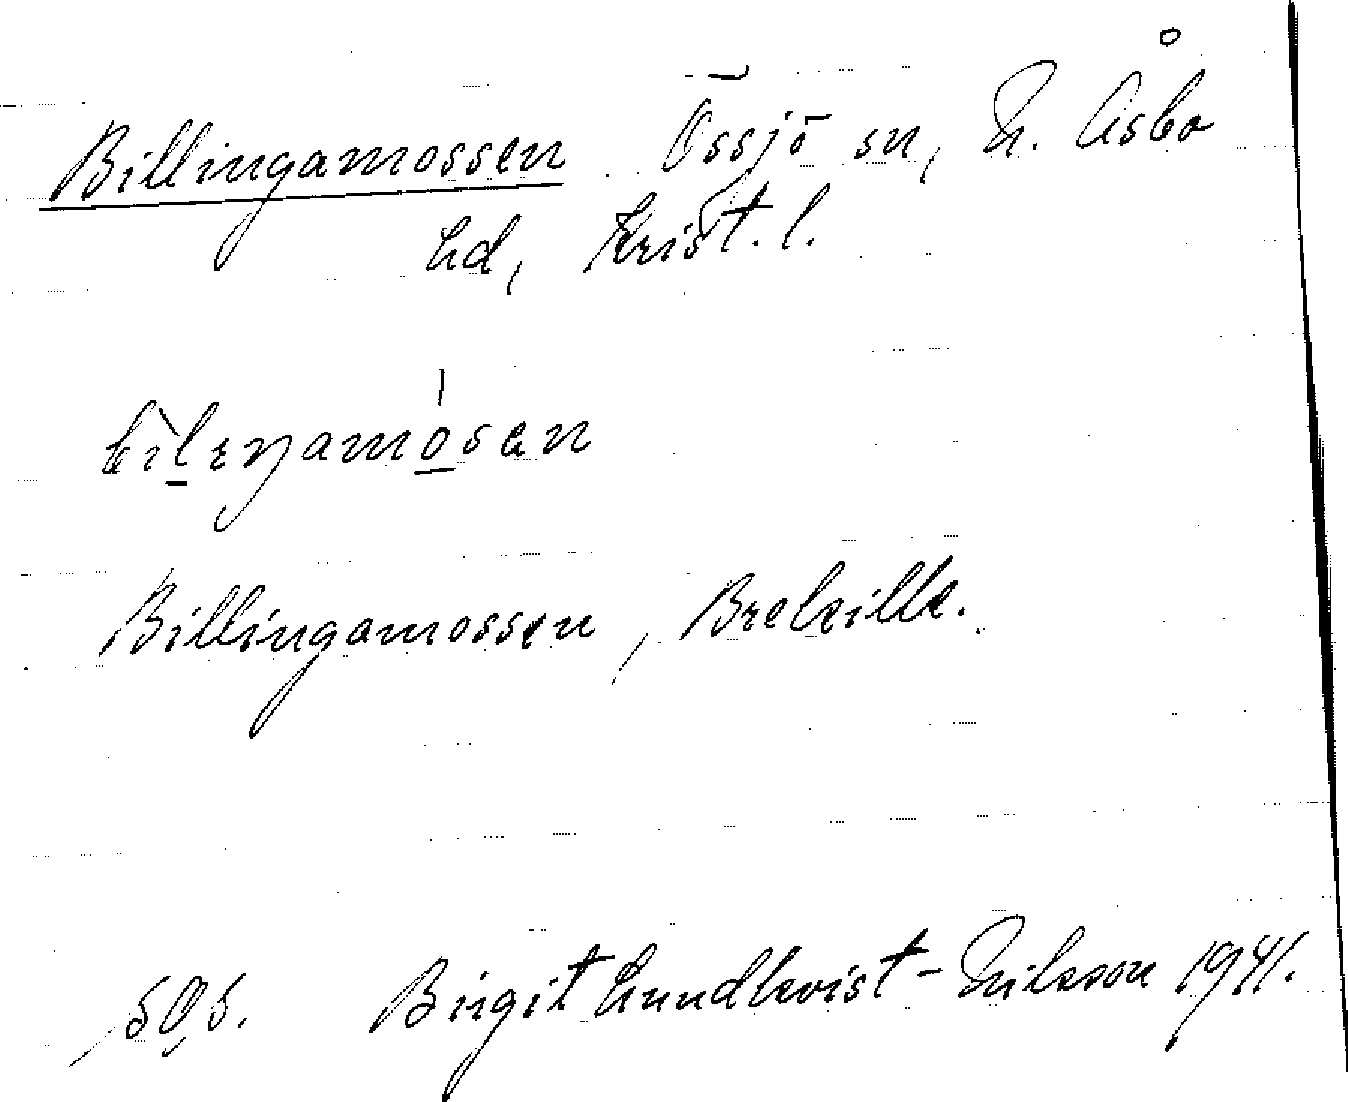 Billingamossen Össjö sn, N. Åsbo
hd, Krist. l.
bìlıŋamósan
Billingamossen, Brekille.
Birgit Lundkvist-Nilsson 1941.